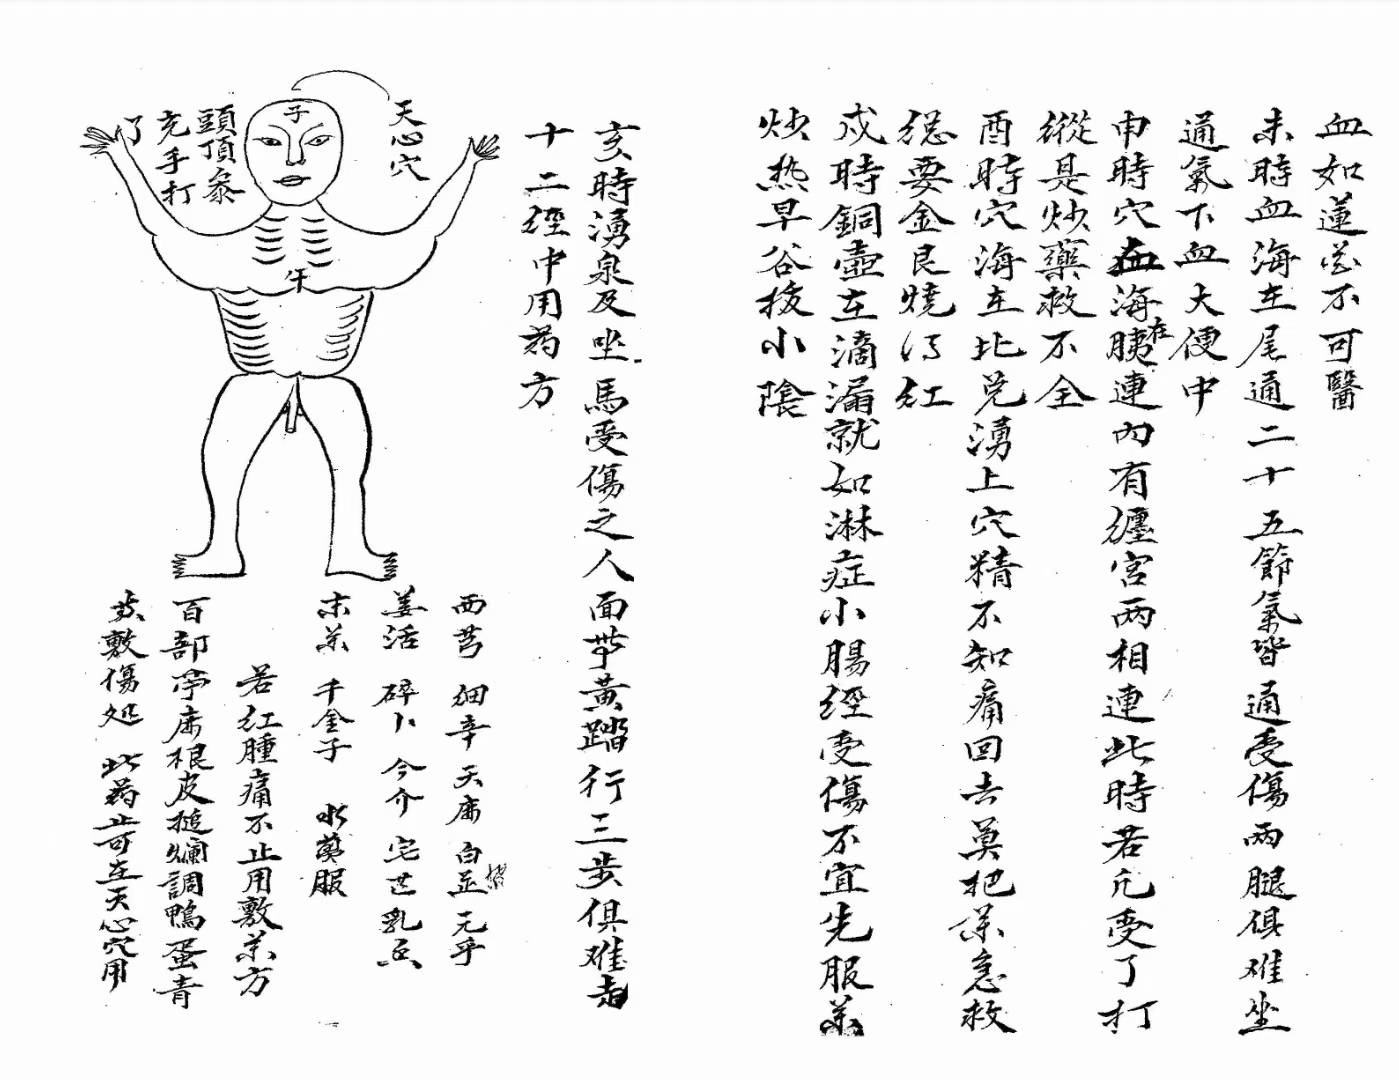 血如蓮花不可醫
未時血海在尾通二十五節氣皆通受傷兩腿俱难坐
通氣下血大便中
申時穴血海在胰連內有纏宮兩相連此時若凢受了打
縱是炒藥救不全
酉時穴海在北兊湧上穴精不知痛回去莫把葯急救
總要金艮燒得紅
戍時銅壺在滴漏就如淋症小腸經受傷不宜先服葯
炒热早谷拔小陰
亥時湧泉及坐馬受傷之人面帶黃踏行三步俱难走
十二經中用药方
天心穴
子
午
頭頂
充手打
了
西芎 細辛 天麻 白芷 元乎
姜活 碎卜 今介 乳
末葯 千金子 水 服
若紅腫痛不止用敷葯方
百部 麻根皮搥爛調鴨蛋青
敷傷处 此药止可在天心穴用